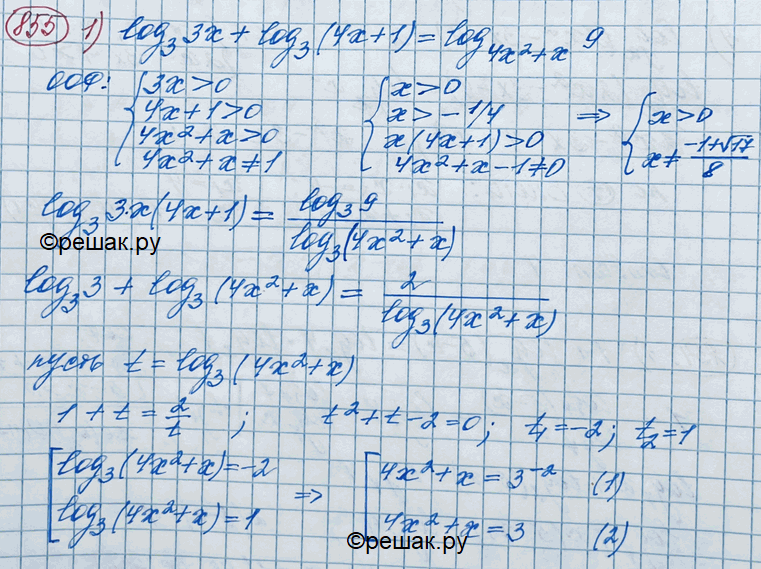 855 1) log₃ 3x + log₃ (4x+1) = log₄ₓ²₊ₓ 9
ООФ: { 3x>0 { x>0
4x+1>0 x>-1/4 => { x>0
4x²+x>0 x(4x+1)>0 x≠ (-1+√17)/8
4x²+x≠1 4x²+x-1≠0
log₃ 3·x(4x+1) = log₃ 9 / log₃(4x²+x)
©решак.ру
log₃3 + log₃(4x²+x) = 2 / log₃(4x²+x)
пусть t = log₃(4x²+x)
1+t = 2/t ; t²+t-2=0; t₁=-2; t₂=1
[ log₃(4x²+x)=-2 => [ 4x²+x = 3⁻² (1)
log₃(4x²+x)=1 4x²+x = 3 (2)
©решак.ру